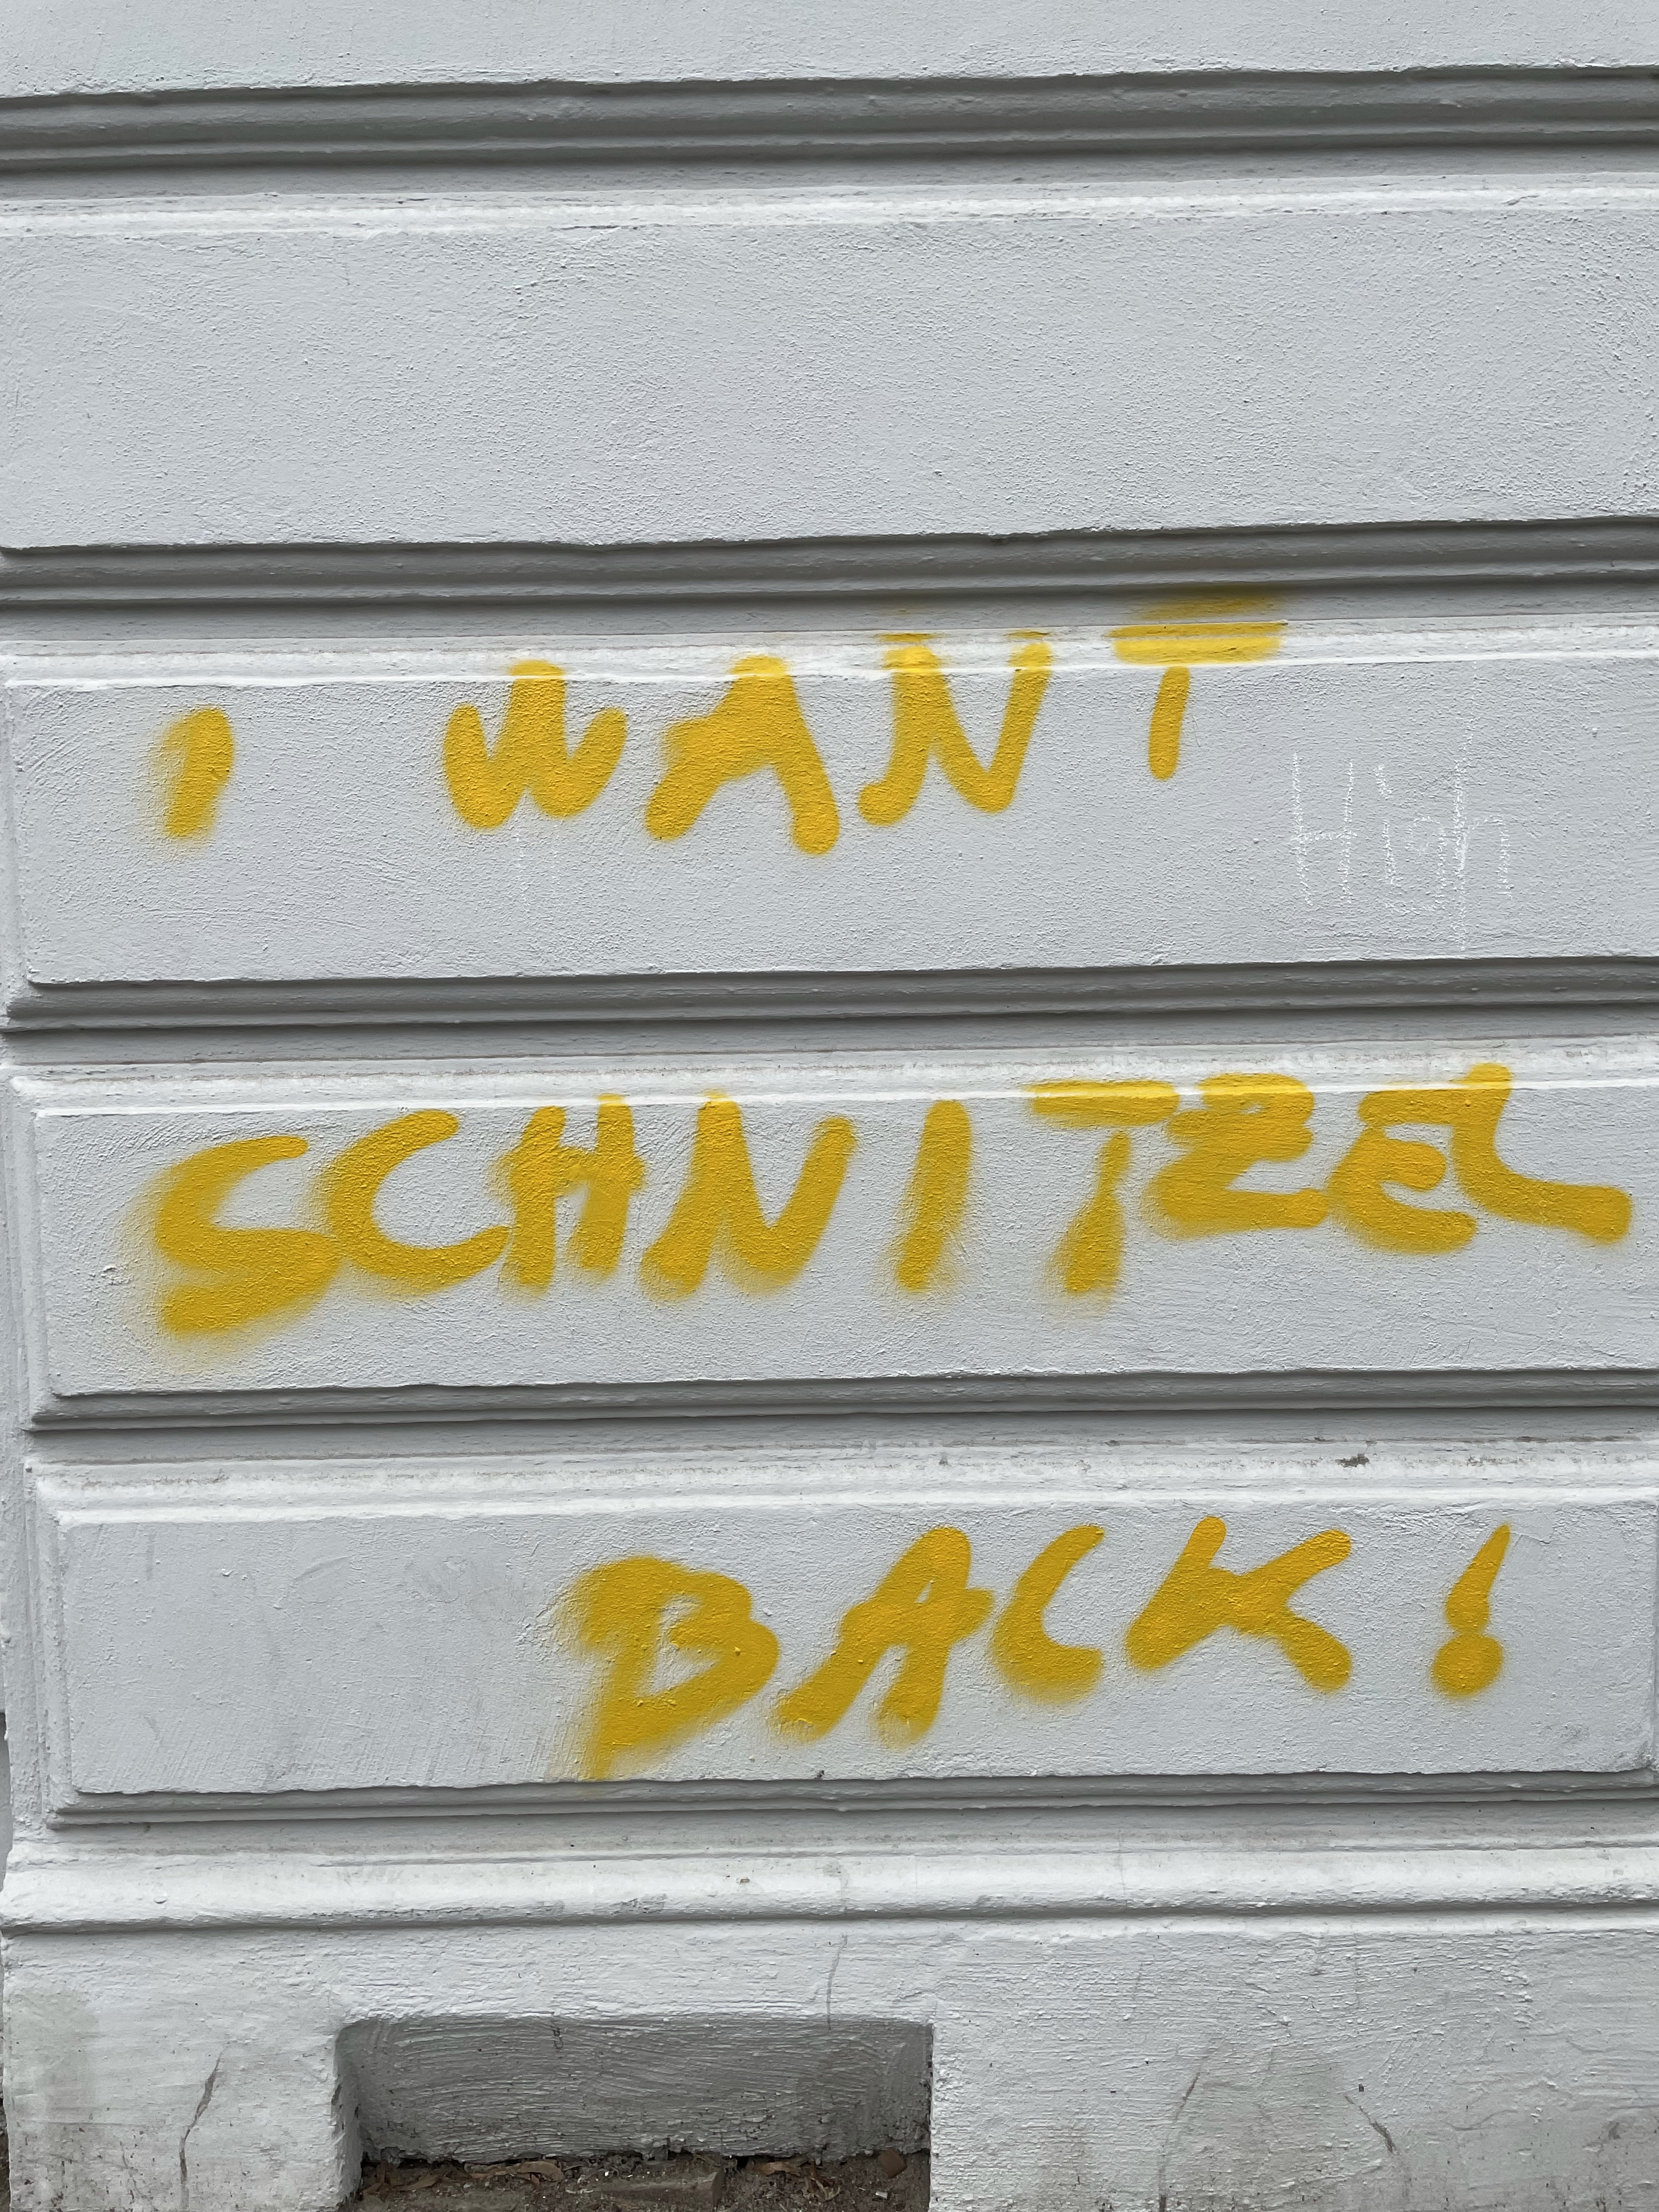 I WANT
High
SCHNITZEL
BACK!